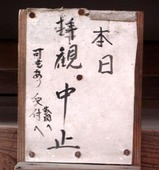 本日
拝観中止
可もあり受付へ